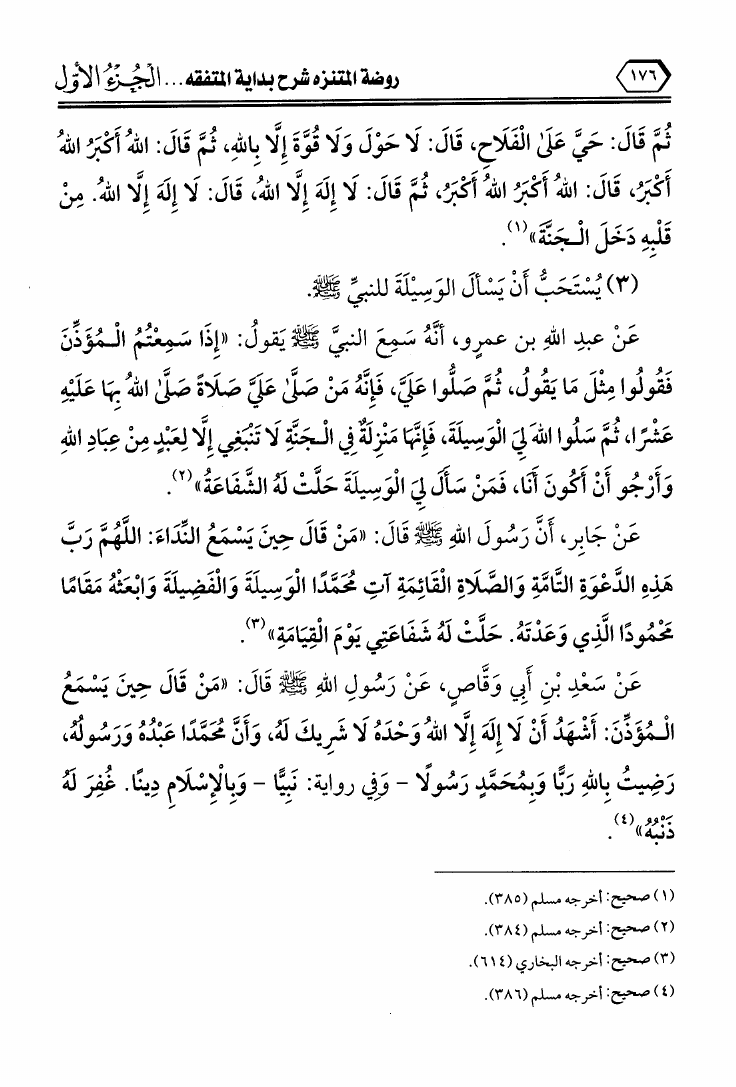 ١٧٦
روضة المتنزه شرح بداية المتفقه ... الْجُزْءُ الأَوَّل
ثُمَّ قَالَ: حَيَّ عَلَى الْفَلَاحِ، قَالَ: لَا حَوْلَ وَلَا قُوَّةَ إِلَّا بِاللهِ، ثُمَّ قَالَ: اللهُ أَكْبَرُ اللهُ
أَكْبَرُ، قَالَ: اللهُ أَكْبَرُ اللهُ أَكْبَرُ، ثُمَّ قَالَ: لَا إِلَهَ إِلَّا اللهُ، قَالَ: لَا إِلَهَ إِلَّا اللهُ. مِنْ
قَلْبِهِ دَخَلَ الْـجَنَّةَ»(١).
(٣) يُسْتَحَبُّ أَنْ يَسْألَ الوَسِيْلَةَ للنبيِّ ﷺ.
عَنْ عبدِ اللهِ بن عمرٍو، أنَّهُ سَمِعَ النبيَّ ﷺ يَقولُ: «إِذَا سَمِعْتُمُ الْـمُؤَذِّنَ
فَقُولُوا مِثْلَ مَا يَقُولُ، ثُمَّ صَلُّوا عَلَيَّ، فَإِنَّهُ مَنْ صَلَّى عَلَيَّ صَلَاةً صَلَّى اللهُ بِهَا عَلَيْهِ
عَشْرًا، ثُمَّ سَلُوا اللهَ لِيَ الْوَسِيلَةَ، فَإِنَّهَا مَنْزِلَةٌ فِي الْـجَنَّةِ لَا تَنْبَغِي إِلَّا لِعَبْدٍ مِنْ عِبَادِ اللهِ
وَأَرْجُو أَنْ أَكُونَ أَنَا، فَمَنْ سَأَلَ لِيَ الْوَسِيلَةَ حَلَّتْ لَهُ الشَّفَاعَةُ»(٢).
عَنْ جَابِرٍ، أَنَّ رَسُولَ اللهِ ﷺ قَالَ: «مَنْ قَالَ حِينَ يَسْمَعُ النِّدَاءَ: اللَّهُمَّ رَبَّ
هَذِهِ الدَّعْوَةِ التَّامَّةِ وَالصَّلَاةِ الْقَائِمَةِ آتِ مُحَمَّدًا الْوَسِيلَةَ وَالْفَضِيلَةَ وَابْعَثْهُ مَقَامًا
مَحْمُودًا الَّذِي وَعَدْتَهُ. حَلَّتْ لَهُ شَفَاعَتِي يَوْمَ الْقِيَامَةِ»(٣).
عَنْ سَعْدِ بْنِ أَبِي وَقَّاصٍ، عَنْ رَسُولِ اللهِ ﷺ قَالَ: «مَنْ قَالَ حِينَ يَسْمَعُ
الْـمُؤَذِّنَ: أَشْهَدُ أَنْ لَا إِلَهَ إِلَّا اللهُ وَحْدَهُ لَا شَرِيكَ لَهُ، وَأَنَّ مُحَمَّدًا عَبْدُهُ وَرَسُولُهُ،
رَضِيتُ بِاللهِ رَبًّا وَبِمُحَمَّدٍ رَسُولًا – وَفِي رواية: نَبِيًّا – وَبِالْإِسْلَامِ دِينًا. غُفِرَ لَهُ
ذَنْبُهُ»(٤).
(١) صحيح: أخرجه مسلم (٣٨٥).
(٢) صحيح: أخرجه مسلم (٣٨٤).
(٣) صحيح: أخرجه البخاري (٦١٤).
(٤) صحيح: أخرجه مسلم (٣٨٦).